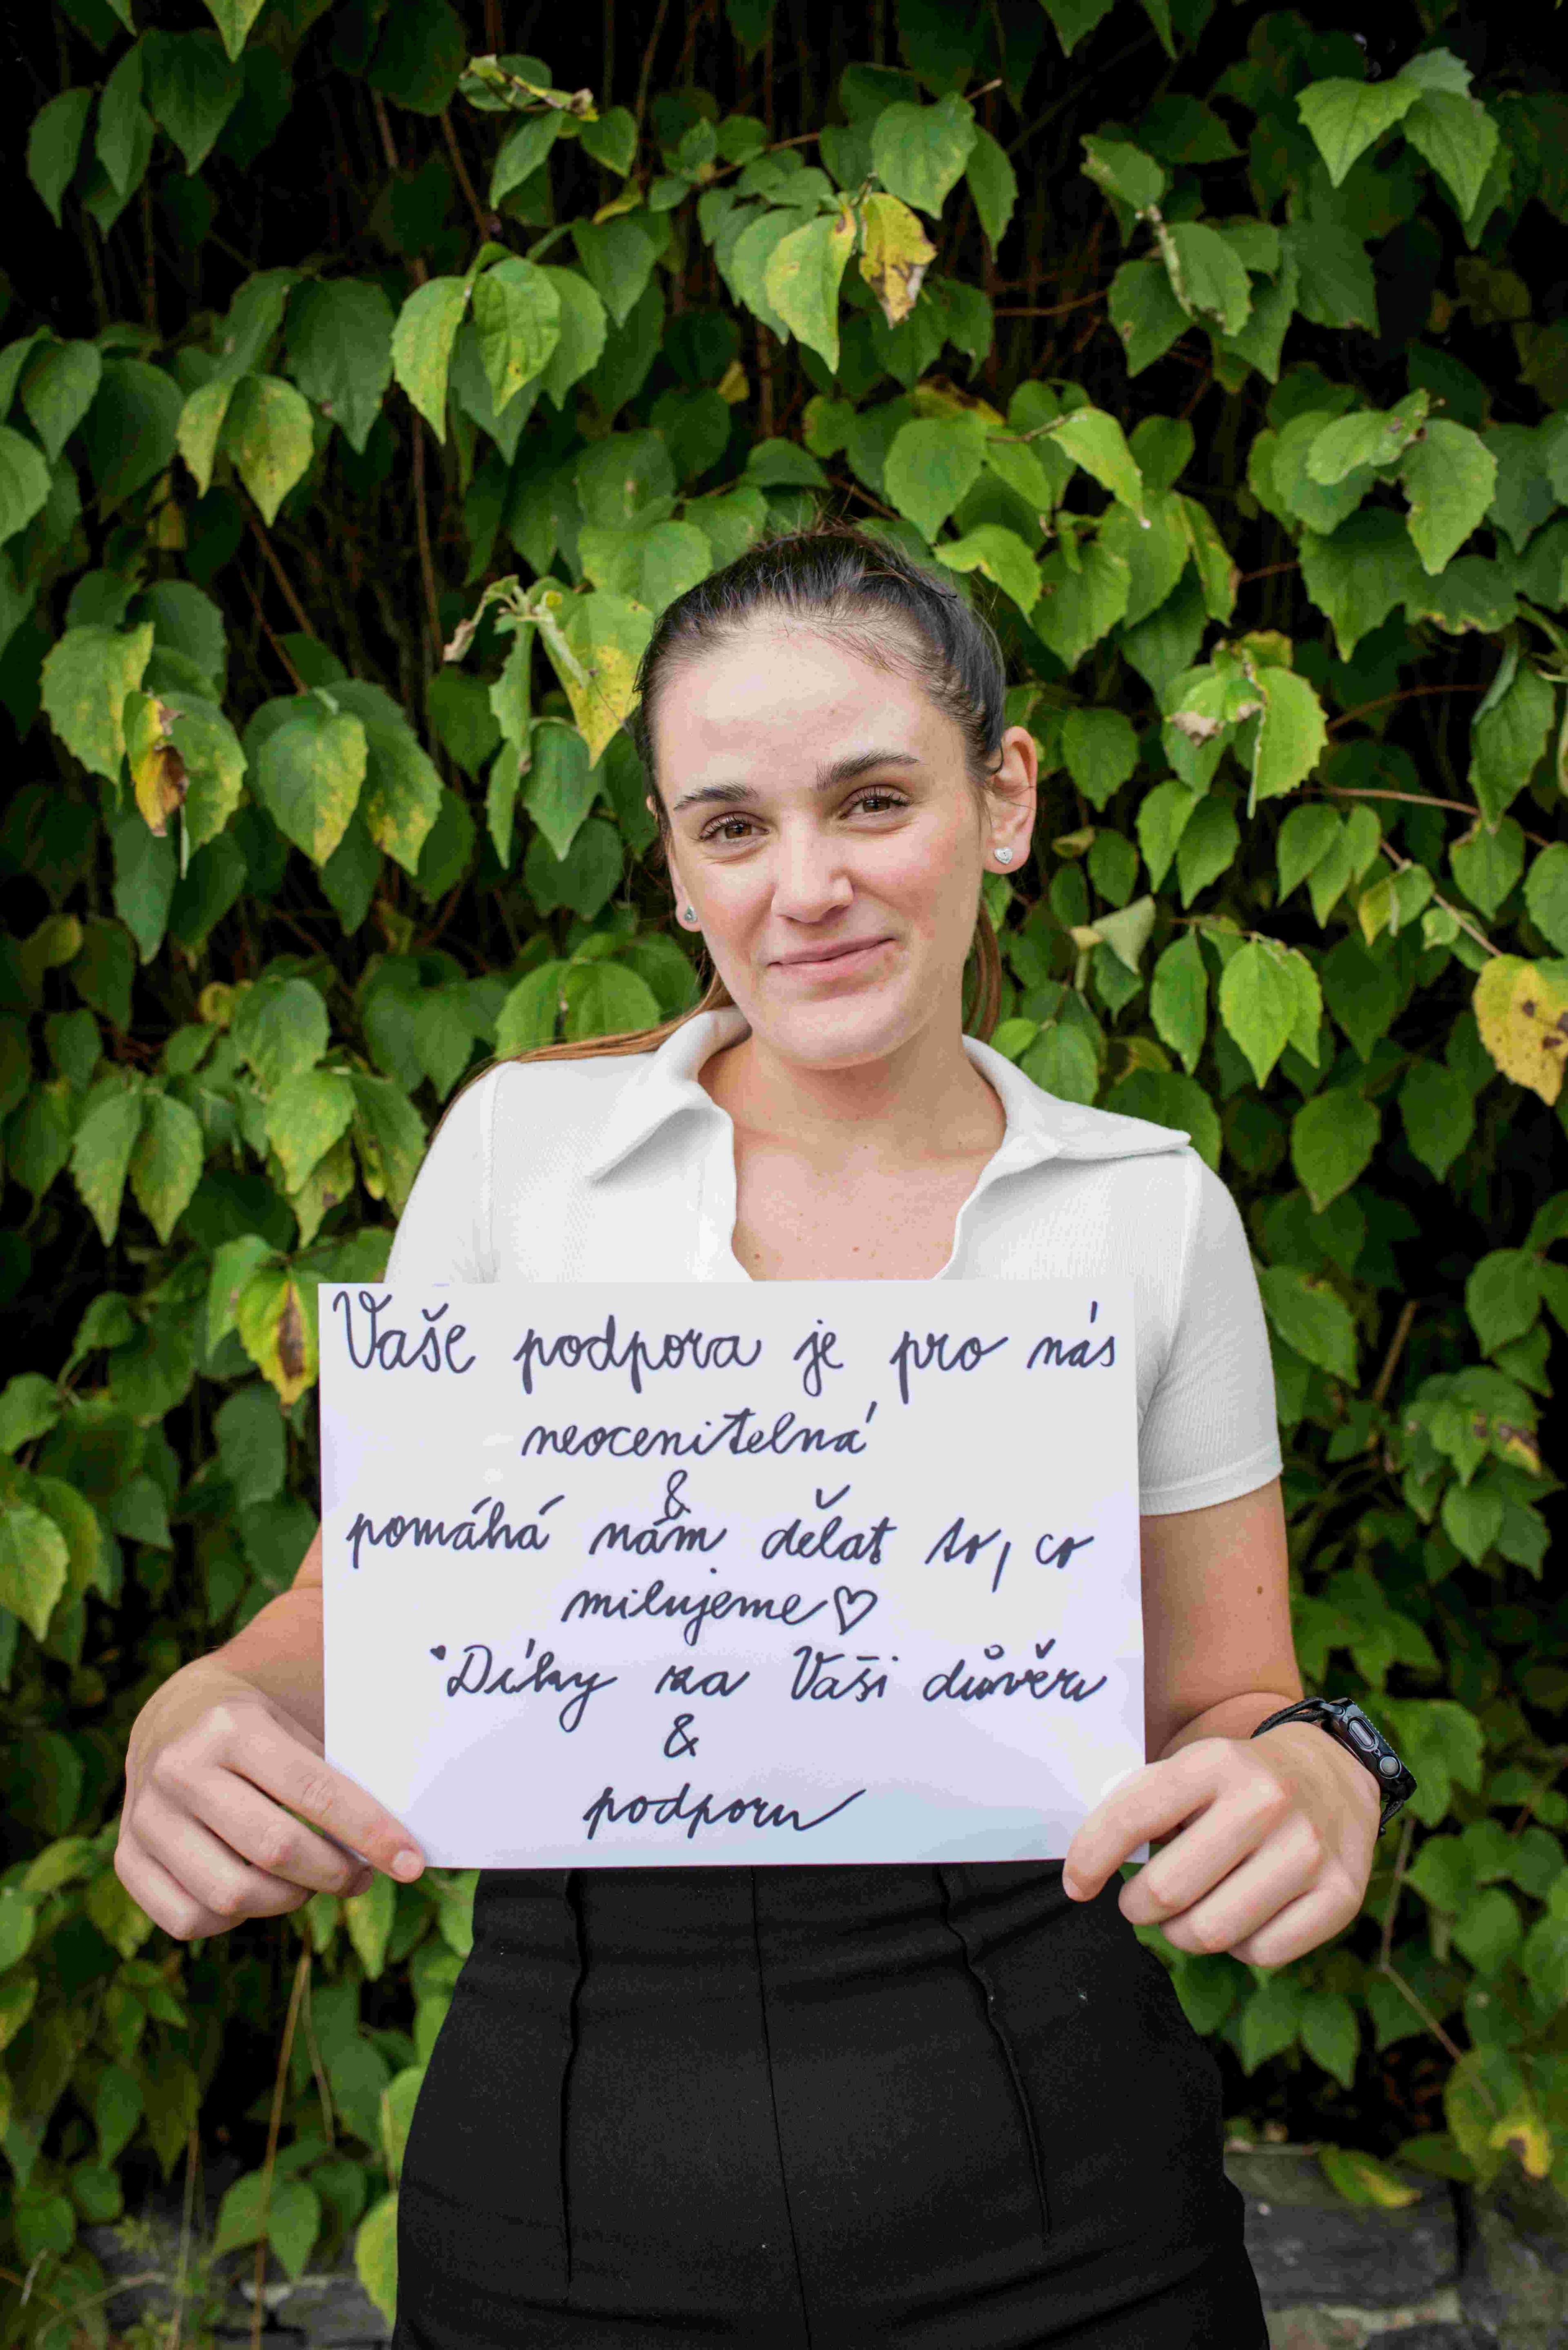 Vaše podpora je pro nás
neocenitelná
&
pomáhá nám dělat to, co
milujeme♡
Díky za Vaši důvěru
&
podporu